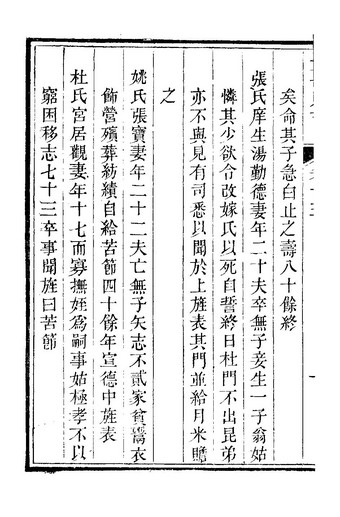 矣命其子急白止之壽八十餘終
張氏庠生湯勤德妻年二十夫卒無子妾生一子翁姑
憐其少欲令改嫁氏以死自誓終日杜門不出昆弟
亦不與見有司悉以聞於上旌表其門並給月米贍
之
姚氏張寶妻年二十二夫亡無子矢志不貳家貧鬻衣
飾營殯葬紡績自給苦節四十餘年宣德中旌表
杜氏宮居觀妻年十七而寡撫姪為嗣事姑極孝不以
窮困移志七十三卒事聞旌曰苦節